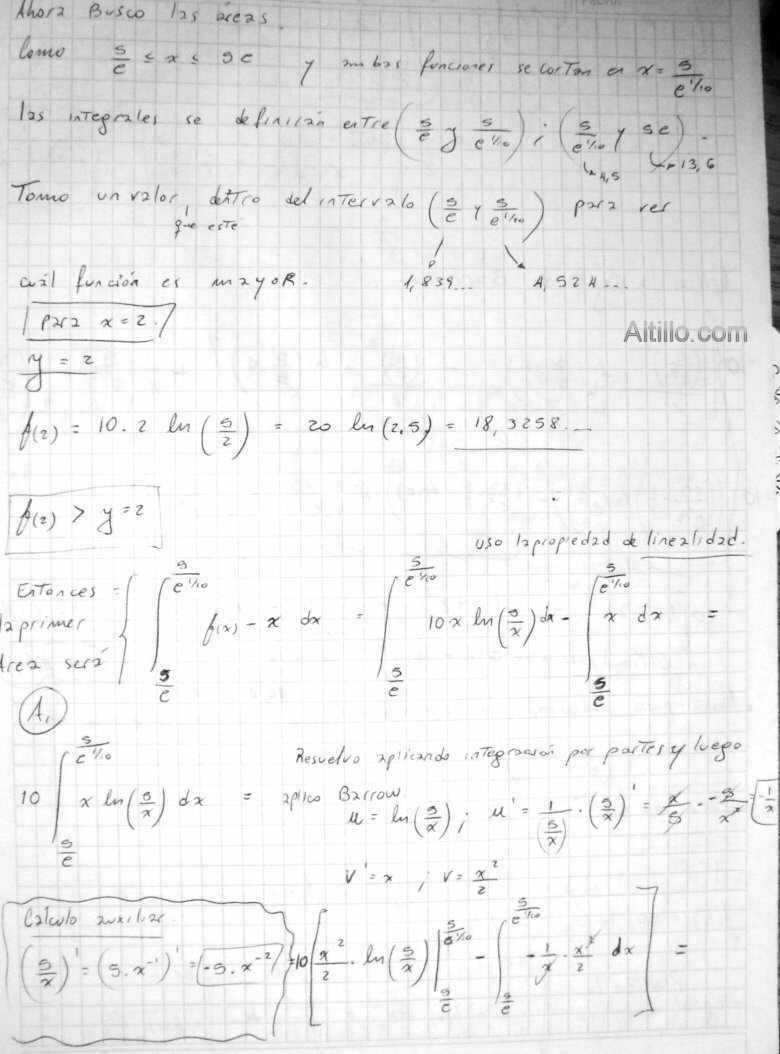 Ahora Busco las áreas.
Como 5/e ≤ x ≤ 5e y ambas funciones se cortan en x = 5/e^(1/10)
las integrales se definirán entre (5/e y 5/e^(1/10)) ; (5/e^(1/10) y 5e).
4,5 13,6
Tomo un valor, dentro del intervalo (5/e y 5/e^(1/10)) para ver
que esté
cuál función es mayor. 1,839... 4,524...
para x = 2.
Altillo.com
y = 2
f(2) = 10.2 ln(5/2) = 20 ln(2,5) = 18,3258...
f(2) > y = 2
uso la propiedad de linealidad.
Entonces = { ∫_(5/e)^(5/e^(1/10)) f(x) - x dx = ∫_(5/e)^(5/e^(1/10)) 10x ln(5/x) dx - ∫_(5/e)^(5/e^(1/10)) x dx =
la primer
área será
A₁
Resuelvo aplicando integración por partes y luego
10 ∫_(5/e)^(5/e^(1/10)) x ln(5/x) dx = aplico Barrow
u = ln(5/x) ; u' = 1/(5/x) · (5/x)' = x/5 · -5/x² = -1/x
v' = x ; v = x²/2
Calculo auxiliar.
(5/x)' = (5.x⁻¹)' = -5.x⁻² = 10 [ x²/2 · ln(5/x) |_(5/e)^(5/e^(1/10)) - ∫_(5/e)^(5/e^(1/10)) -1/x · x²/2 dx ] =